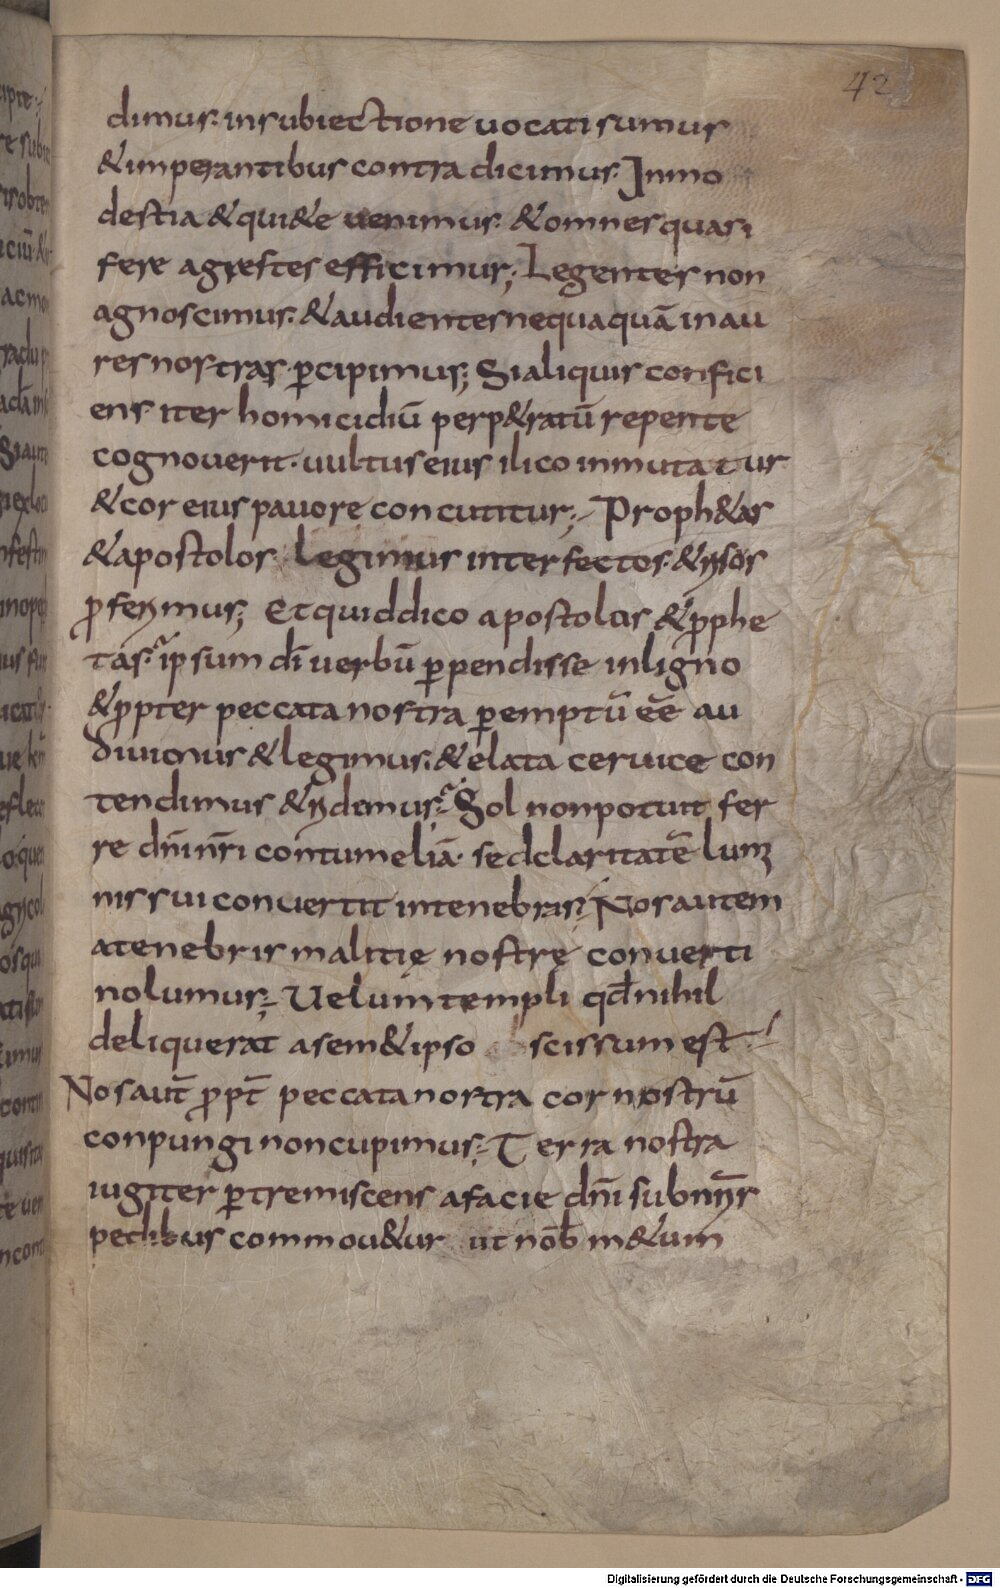 42
dimus. insubiectione uocati sumus
&imperantibus contradicimus. Inmo
destia &qui&e uenimus. &omnes quasi
fere agrestes efficimur; Legentes non
agnoscimus. &audientes nequaquā in au
res nostras ꝑcipimus; Si aliquis confici
ens iter homicidiū perp&ratū repente
cognouerit. uultus eius ilico inmutatur
&cor eius pauore concutitur; Proph&as
&apostolos legimus interfectos. &
ꝓ Et quid dico apostolos &ꝓphe
tas. ipsum dī uerbū ꝑpendisse in ligno
&ꝓpter peccata nostra ꝑemptū eē au
diuimus &legimus. &elata ceruice con
tendimus & Sol non potuit fer
re dn̄i nr̄i contumeliā. sed claritatē lumi
nis sui conuertit in tenebras; Nos autem
a tenebris malitię nostrę conuerti
nolumus; Uelum templi qđ nihil
deliquerat a sem&ipso scissum est
Nos aut̄ ꝓpt̄ peccata nostra cor nostrū
conpungi non cupimus; Terra nostra
iugiter ꝑtremiscens a facie dn̄i sub
pedibus commou&ur ut nob̄ m&um
Digitalisierung gefördert durch die Deutsche Forschungsgemeinschaft - DFG